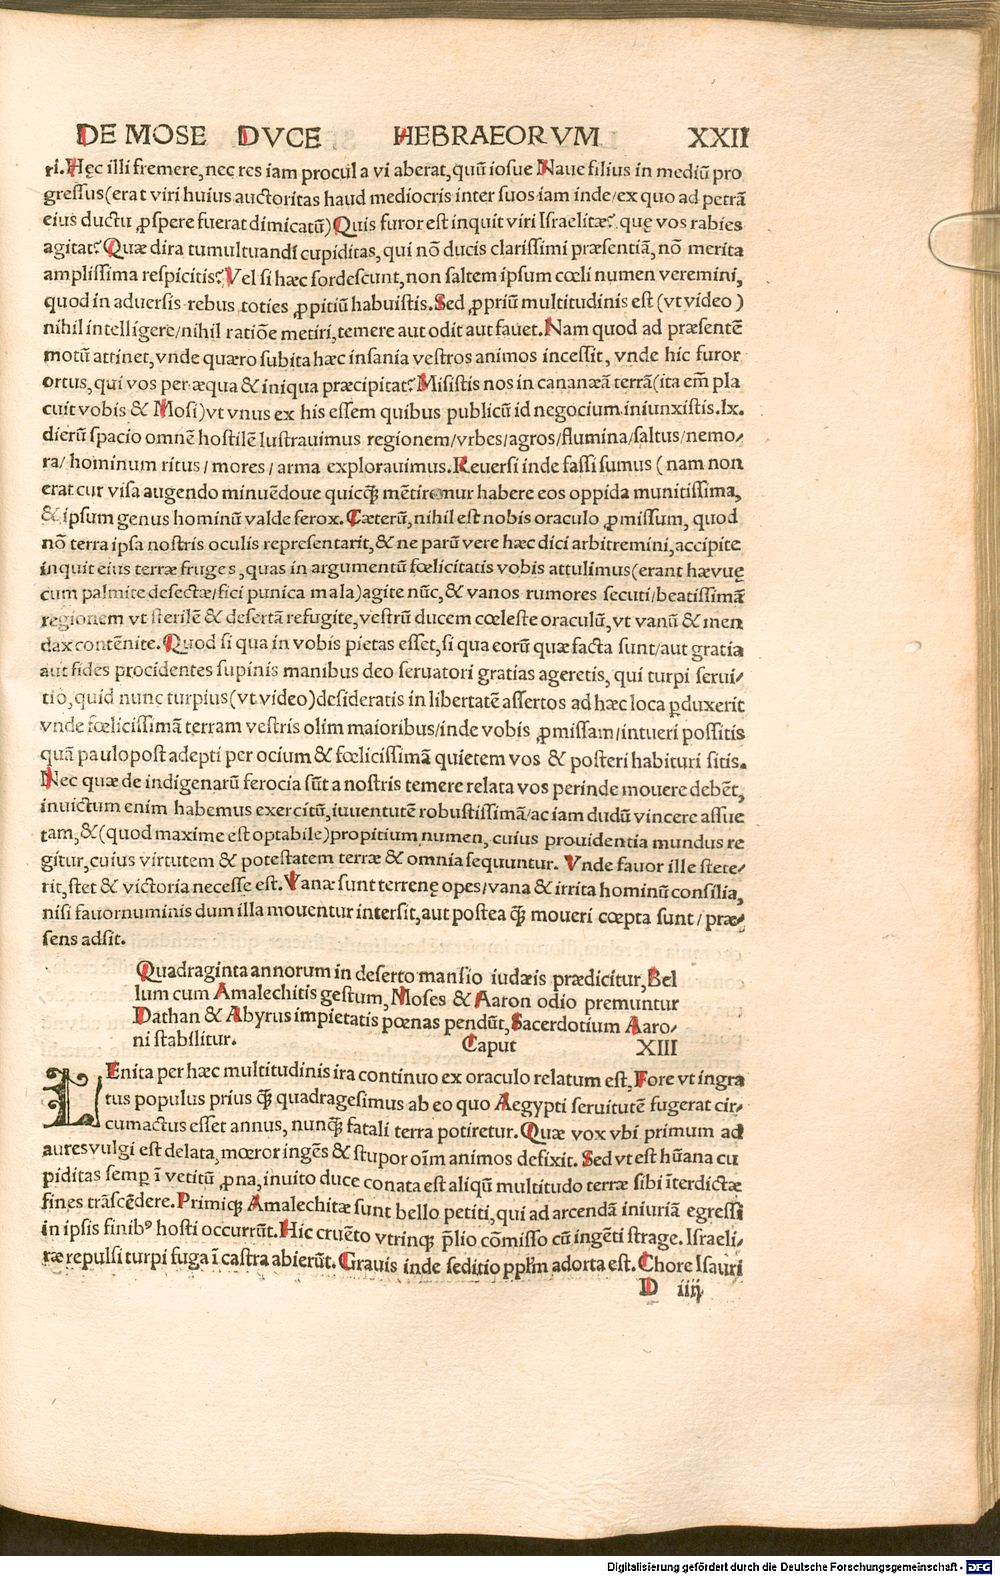 DE MOSE DVCE HEBRAEORVM XXII
ri. Hęc illi fremere, nec res iam procul a vi aberat, quū iosue Naue filius in mediū pro
gressus(erat viri huius auctoritas haud mediocris inter suos iam inde/ex quo ad petrā
eius ductu ꝓspere fuerat dimicatū) Quis furor est inquit viri Israelitæ? quę vos rabies
agitat? Quæ dira tumultuandi cupiditas, qui nō ducis clarissimi præsentiā, nō merita
amplissima respicitis? Vel si hæc sordescunt, non saltem ipsum cœli numen veremini,
quod in aduersis rebus toties ꝓpitiū habuistis. Sed ꝓpriū multitudinis est (vt video)
nihil intelligere/nihil ratiōe metiri, temere aut odit aut fauet. Nam quod ad præsentē
motū attinet, vnde quæro subita hæc insania vestros animos incessit, vnde hic furor
ortus, qui vos per æqua & iniqua præcipitat? Misistis nos in cananæā terrā(ita em̄ pla
cuit vobis & Mosi)vt vnus ex his essem quibus publicū id negocium iniunxistis. Ix.
dierū spacio omnē hostilē lustrauimus regionem/vrbes/agros/flumina/saltus/nemo/
ra/ hominum ritus/ mores/ arma explorauimus. Reuersi inde fassi sumus (nam non
erat cur visa augendo minuēdoue quicꝗ̄ mētiremur habere eos oppida munitissima,
& ipsum genus hominū valde ferox. Cæterū, nihil est nobis oraculo ꝓmissum, quod
nō terra ipsa nostris oculis representarit, & ne parū vere hæc dici arbitremini, accipite
inquit eius terræ fruges, quas in argumentū fœlicitatis vobis attulimus(erant hæ vuę
cum palmite desectæ/fici punica mala)agite nūc, & vanos rumores secuti/beatissimā
regionem vt sterilē & desertā refugite, vestrū ducem cœleste oraculū, vt vanū & men
dax contēnite. Quod si qua in vobis pietas esset, si qua eorū quæ facta sunt/aut gratia
aut fides procidentes supinis manibus deo seruatori gratias ageretis, qui turpi serui/
tio, quid nunc turpius(vt video)desideratis in libertatē assertos ad hæc loca ꝑduxerit
vnde fœlicissimā terram vestris olim maioribus/inde vobis ꝓmissam/intueri possitis
quā paulopost adepti per ocium & fœlicissimā quietem vos & posteri habituri sitis.
Nec quæ de indigenarū ferocia sūt a nostris temere relata vos perinde mouere debēt,
inuictum enim habemus exercitū, iuuentutē robustissimā/ac iam dudū vincere assue
tam, &(quod maxime est optabile)propitium numen, cuius prouidentia mundus re
gitur, cuius virtutem & potestatem terræ & omnia sequuntur. Vnde fauor ille stete/
rit, stet & victoria necesse est. Vanæ sunt terrenę opes/vana & irrita hominū consilia,
nisi fauor numinis dum illa mouentur intersit, aut postea ꝗ̄ moueri cœpta sunt/præ/
sens adsit.
Quadraginta annorum in deserto mansio iudæis prædicitur, Bel
lum cum Amalechitis gestum, Moses & Aaron odio premuntur
Dathan & Abyrus impietatis pœnas pendūt, Sacerdotium Aaro/
ni stabslitur. Caput XIII
LEnita per hæc multitudinis ira continuo ex oraculo relatum est, Fore vt ingra
tus populus prius ꝗ̄ quadragesimus ab eo quo Aegypti seruitutē fugerat cir/
cumactus esset annus, nunꝗ̄ fatali terra potiretur. Quæ vox vbi primum ad
aures vulgi est delata, mœror ingēs & stupor oīm animos defixit. Sed vt est hūana cu
piditas semꝑ ī vetitū ꝓna, inuito duce conata est aliqū multitudo terræ sibi īterdictæ
fines trāscēdere. Primiqꝫ Amalechitæ sunt bello petiti, qui ad arcendā iniuriā egressi
in ipsis finibꝰ hosti occurrūt. Hic cruēto vtrinqꝫ p̄lio cōmisso cū ingēti strage. Israeli/
tæ repulsi turpi fuga ī castra abierūt. Grauis inde seditio ppl̄m adorta est. Chore Isauri
D iiij
Digitalisierung gefördert durch die Deutsche Forschungsgemeinschaft - DFG